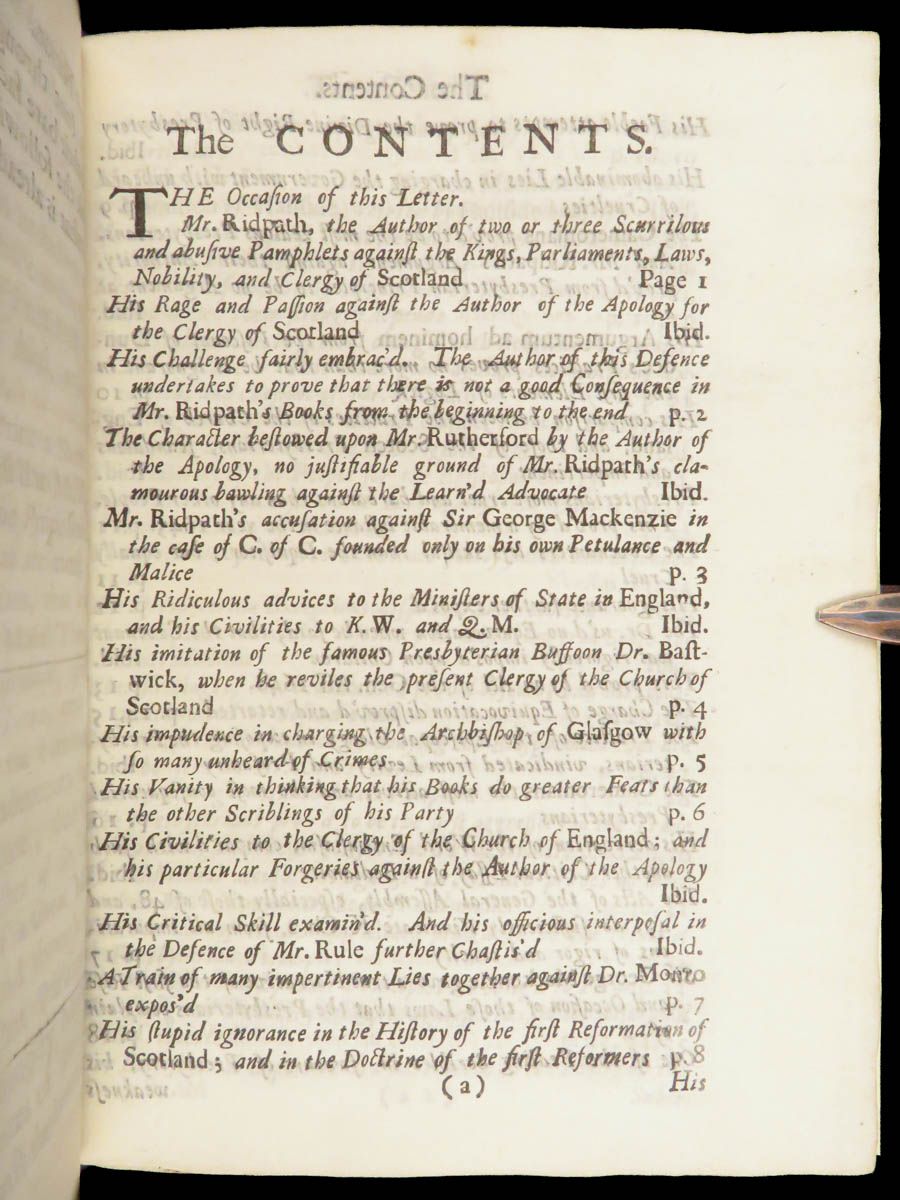 The CONTENTS.
THE Occaſion of this Letter.
Mr. Ridpath, the Author of two or three Scurrilous
and abuſive Pamphlets againſt the Kings, Parliaments, Laws,
Nobility, and Clergy of Scotland Page 1
His Rage and Paſſion againſt the Author of the Apology for
the Clergy of Scotland Ibid.
His Challenge fairly embrac'd. The Author of this Defence
undertakes to prove that there is not a good Conſequence in
Mr. Ridpath's Books from the beginning to the end p. 2
The Character beſtowed upon Mr. Rutherford by the Author of
the Apology, no juſtifiable ground of Mr. Ridpath's cla-
mourous bawling againſt the Learn'd Advocate Ibid.
Mr. Ridpath's accuſation againſt Sir George Mackenzie in
the caſe of C. of C. founded only on his own Petulance and
Malice p. 3
His Ridiculous advices to the Miniſters of State in England,
and his Civilities to K. W. and Q. M. Ibid.
His imitation of the famous Presbyterian Buffoon Dr. Baſt-
wick, when he reviles the preſent Clergy of the Church of
Scotland p. 4
His impudence in charging the Archbiſhop of Glaſgow with
ſo many unheard of Crimes p. 5
His Vanity in thinking that his Books do greater Feats than
the other Scriblings of his Party p. 6
His Civilities to the Clergy of the Church of England; and
his particular Forgeries againſt the Author of the Apology
Ibid.
His Critical Skill examin'd. And his officious interpoſal in
the Defence of Mr. Rule further Chaſtis'd Ibid.
A Train of many impertinent Lies together againſt Dr. Monro
expos'd p. 7
His ſtupid ignorance in the Hiſtory of the firſt Reformation of
Scotland; and in the Doctrine of the firſt Reformers p. 8
(a) His